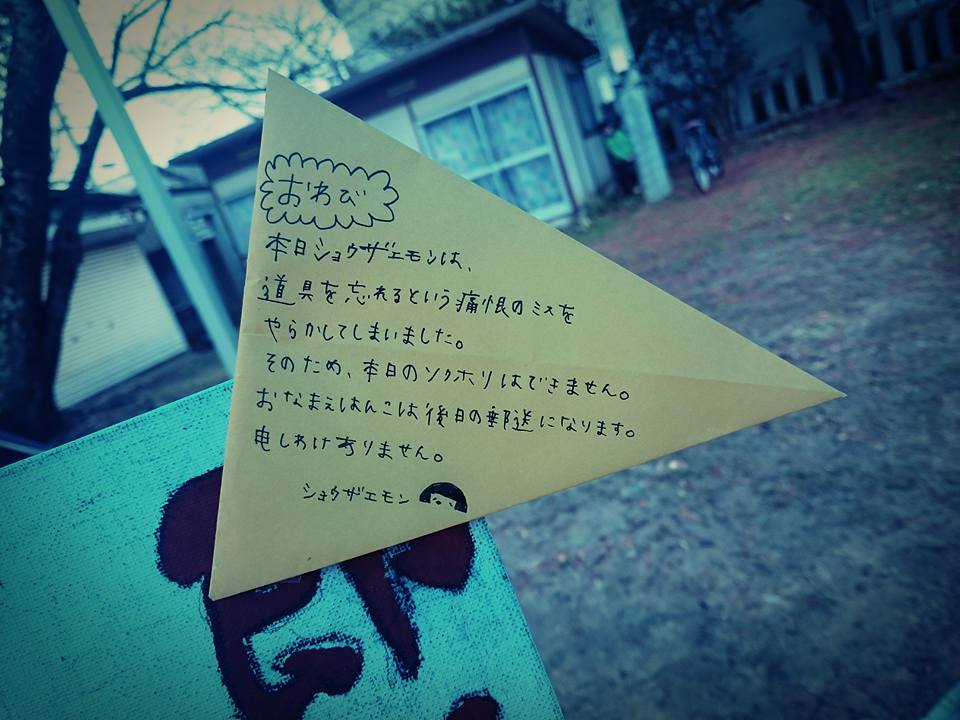 おわび
本日ショウザエモンは、
道具を忘れるという痛恨のミスを
やらかしてしまいました。
そのため、本日のソクホリはできません。
おなまえはんこは後日の郵送になります。
申しわけありません。
ショウザエモン